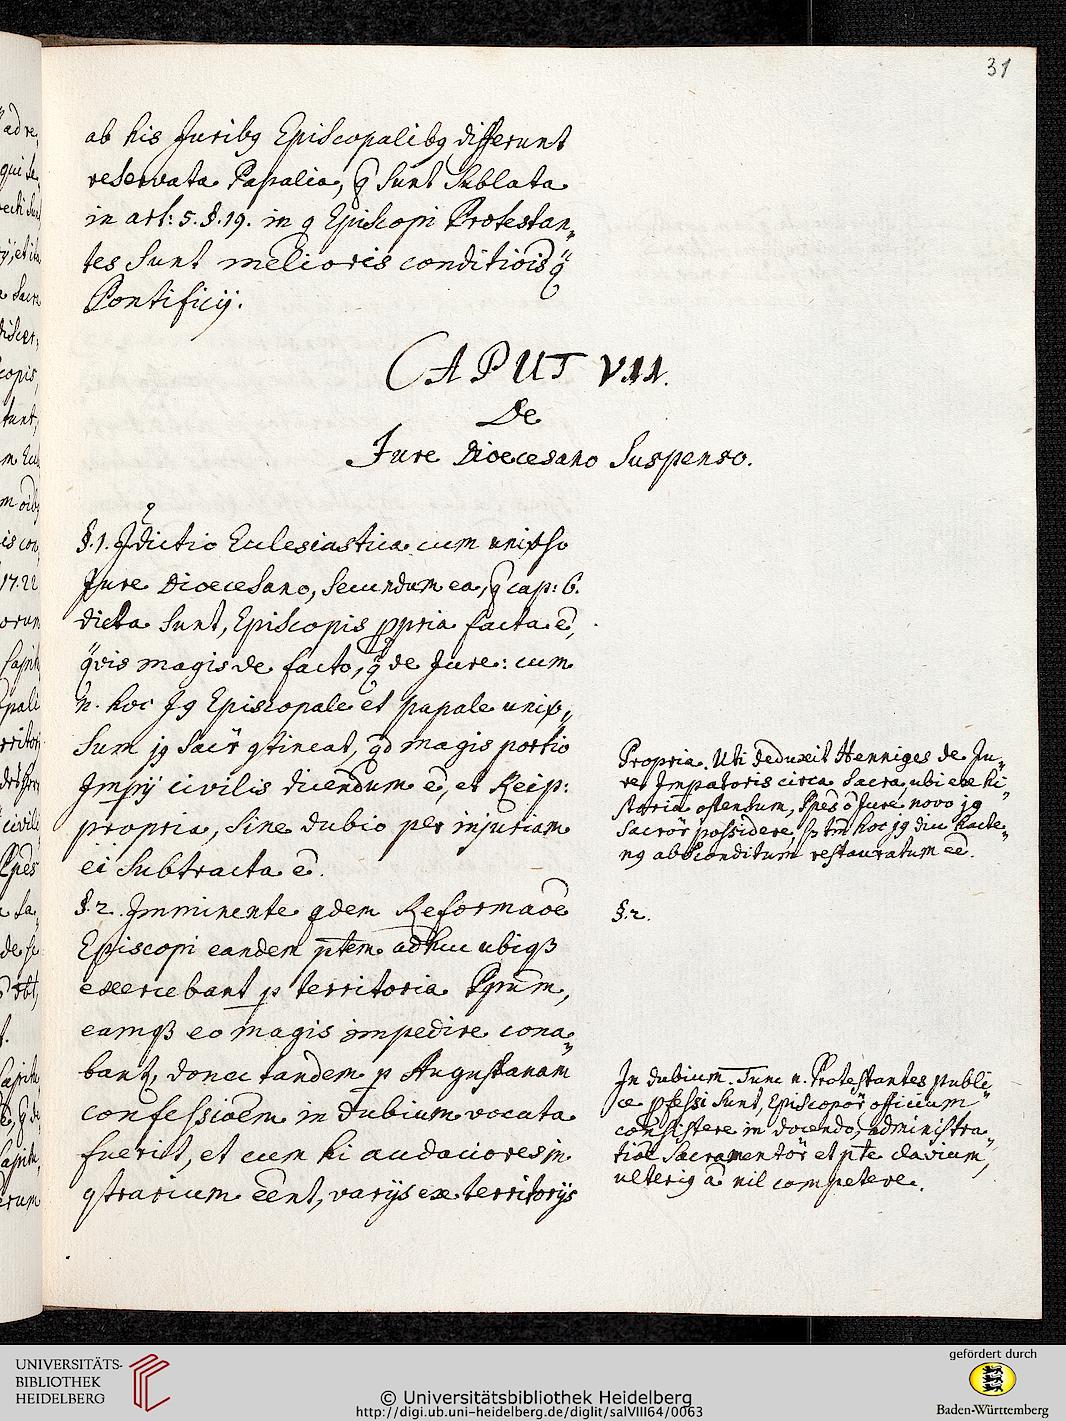 31
ab his Juribq Episcopalibq differunt
reservata Papalia, q̃ sunt sublata
in art: 5. §. 19. in q Episcopi Protestan„
tes sunt melioris conditiõis q̃
Pontificij.
CAPUT VII.
De
Jure Dioecesano Suspenso.
§. 1. Jdictio Ecclesiastica cum
Jure Dioecesano, secundum ea, q̃ cap: 6.
dicta sunt, Episcopis ppria facta ẽ,
q̈vis magis de facto, q̈ de Jure: cum
n. hoc Jq Episcopale et papale
sum jq sacr̃ qtineat, qd magis portio
Impij civilis dicendum ẽ, et Reip:
propria, sine dubio per injuriam
ei subtracta ẽ.
Propria. Uti deduxit Henniges de Ju„
re Impatoris circa sacra, ubi ex hi„
storia ostensum, Jure novo jq
sacror̃ possidere, tm̃ hoc jq diu hacte„
nq absconditum restauratum eẽ.
§. 2. Imminente qdem Reformaõe
Episcopi eandem ptem adhuc ubiqß
exercebant p territoria Ppum,
eamqß eo magis impedire cona„
bant, donec tandem p Augustanam
confessioẽm in dubium vocata
fuerit, et cum hi audaciores in
qtrarium eẽnt, varijs ex territorijs
§. 2.
In dubium. Tunc n. Protestantes publi„
ce pfessi sunt, Episcopor̃ officium
consistere in docendo, administra„
tiõe Sacramentor̃ et pte clavium,
ulteriq ã nil competere.
UNIVERSITÄTS-
BIBLIOTHEK
HEIDELBERG
© Universitätsbibliothek Heidelberg
http://digi.ub.uni-heidelberg.de/diglit/salVIII64/0063
gefördert durch
Baden-Württemberg